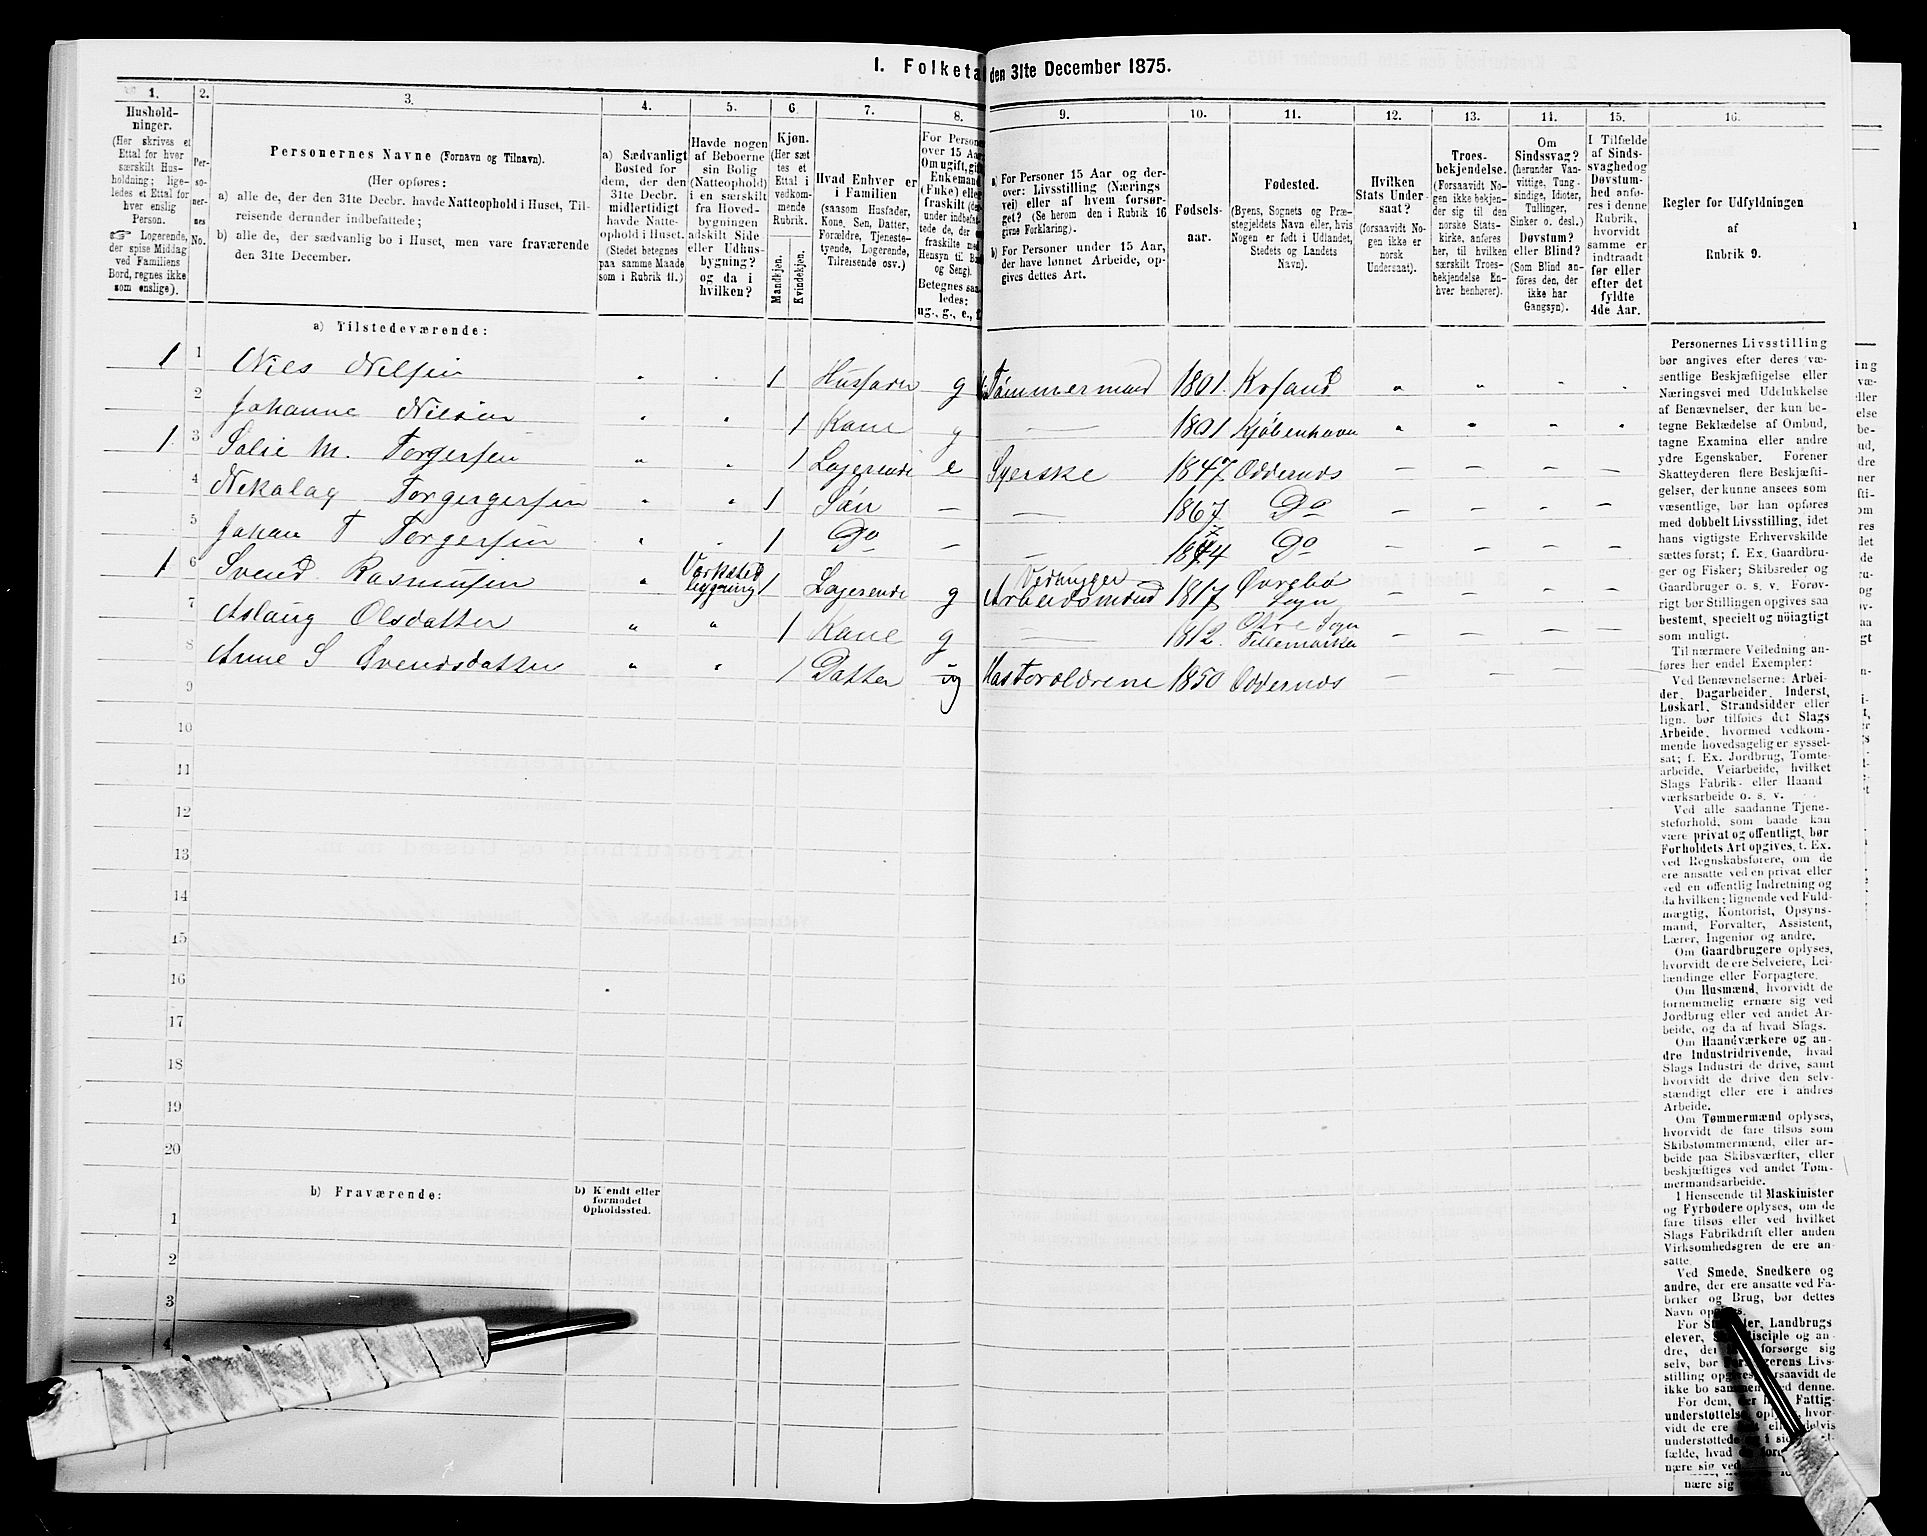 1. Folketal den 31te December 1875.
1. 2. 3. 4. 5. 6 7. 8. 9. 10. 11. 12. 13. 14. 15. 16.
Hushold-
ninger.
(Her skrives et
Ettal for hver
særskilt Hus-
holdning; lige-
ledes et Ettal for
hver enslig
Person.
☞ Logerende,
der spise Middag
ved Familiens
Bord, regnes ikke
som enslige).
Per-
so-
ner-
nes
No.
Personernes Navne (Fornavn og Tilnavn).
(Her opføres:
a) alle de, der den 31te Decbr. havde Natteophold i Huset, Til-
reisende derunder indbefattede;
b) alle de, der sædvanlig bo i Huset, men vare fraværende
den 31te December.
a) Sædvanligt
Bosted for
dem, der den
31te Decbr.
midlertidigt
havde Natte-
ophold i Huset.
(Stedet betegnes
paa samme Maade
som i Rubrik 11.)
Havde nogen
af Beboerne
sin Bolig
(Natteophold)
i en særskilt
fra Hoved-
bygningen
adskilt Side
eller Udhus-
bygning?
og da i
hvilken?
Kjøn.
(Her sæt
tes et
Ettal i
vedkom-
mende
Rubrik.
Mandkjøn.
Kvindekjøn.
Hvad Enhver er
i Familien
(saasom Husfader,
Kone, Søn, Datter,
Forældre, Tjeneste-
tyende, Logerende,
Tilreisende osv.)
For Person
over 15 Aar
Om ugift, gift
Enkemand
(Enke) eller
fraskilt (der-
under indbefat-
tede de, der
fraskilte med
Hensyn til Bord
og Seng).
Betegnes saa-
ledes:
ug., g., e., f.
a) For Personer 15 Aar og der-
over: Livsstilling (Nærings
vei) eller af hvem forsør-
get? (Se herom den i Rubrik 16
givne Forklaring).
b) For Personer under 15 Aar,
der have lønnet Arbeide, op-
gives dettes Art.
Fødsels-
aar.
Fødested.
(Byens, Sognets og Præ-
stegjeldets Navn eller, hvis
Nogen er født i Udlandet,
Stedets og Landets
Navn).
Hvilken
Stats Under-
saat?
(forsaavidt No-
gen ikke er
norsk
Undersaat).
Troes-
bekjendelse.
(Forsaavidt No-
gen ikke bekjen-
der sig til den
norske Stats-
kirke, anføres
her, til hvilken
særskilt Troes-
bekjendelse En-
hver henhører).
Om
Sindssvag?
(herunder Van-
vittige, Tung-
sindige, Idioter,
Tullinger,
Sinker o. desl.)
Døvstum?
eller Blind?
(Som Blind an-
føres den, der
ikke har
Gangsyn).
I Tilfælde
af Sinds-
svaghed og
Døvstum-
hed anfø-
res i denne
Rubrik,
hvorvidt
samme er
indtraadt
før eller
efter det
fyldte
4de Aar.
Regler for Udfyldningen
af
Rubrik 9.
a) Tilstedeværende:
1 1 Nils Nilsen " " 1 Husfader g Tømmermand 1801. Krsand " " " "
2 Johanne Nilsen " " 1 Kone g — 1801 Kjøbenhavn " " " "
1 3 Salie M. Torgersen " " 1 Logerende e Syerske 1847 Oddernes — — — —
4 Nikolag Torgergersen " " 1 Søn — — 1867 Do — — — —
5 Johan T Torgersen " " 1 Do — — 1874 Do — — — —
1 6 Svend Rasmusen " Værksted bygning 1 Logerende g Vedhugger Arbeidsmand 1817 Øvrebø Sogn — — — —
7 Aslaug Olsdatter " " 1 Kone g — 1812. Sogn Tillemarken — — — —
8 Anne S Svendsdatter " " 1 Datter ug Hos Forældrene 1850 Oddernes — —
9
10
11
12
13
14
15
16
17
18
19
20
b) Fraværende:
b) Kjendt eller
formodet
Opholdssted.
1
2
3
4
Personernes Livsstilling
bør angives efter deres væ-
sentlige Beskjæftigelse eller
Næringsvei med Udelukkelse
af Benævnelser, der kun be-
tegne Beklædelse af Ombud,
tagne Examina eller andre
ydre Egenskaber. Forener
Skatteyderen flere Beskjæfti-
gelser, der kunne ansees som
væsentlige, bør han opføres
med dobbelt Livsstilling, idet
hans vigtigste Erhvervskilde
sættes først; f. Ex. Gaardbru-
ger og Fisker; Skibsreder og
Gaardbruger o. s. v. Forøv-
rigt bør Stillingen opgives saa
bestemt, specielt og nöiagtigt
som muligt.
Til nærmere Veiledning an-
føres her endel Exempler:
Ved Benævnelserne: Arbei-
der, Dagarbeider, Inderst,
Løskarl, Strandsidder eller
lign. bør tilføies det Slags
Arbeide, hvormed vedkom-
mende hovedsagelig er syssel-
sat; f. Ex. Jordbrug, Tomte-
arbeide, Veiarbeide, hvilket
Slags Fabrik- eller Haand
værksarbeide o. s. v.
Ved alle saadanne Tjene-
steforhold, som baade kan
være privat og offentligt, bør
Forholdets Art opgives, f. Ex.
ved Regnskabsførere, om de
ere ansatte ved en privat eller
ved en offentlig Indretning og
da hvilken; lignende ved Fuld-
mægtig, Kontorist, Opsyns-
mand, Forvalter, Assistent,
Lærer, Ingeniør og andre.
Om Gaardbrugere oplyses,
hvorvidt de ere Selveiere, Lei-
lændinge eller Forpagtere.
Om Husmænd, hvorvidt de
fornemmelig ernære sig ved
Jordbrug eller ved andet Ar-
beide, og da af hvad Slags.
Om Haandværkere og an-
dre Industridrivende, hvad
Slags Industri de drive, samt
hvorvidt de drive den selv-
stændigt eller ere i andres
Arbeide.
Om Tømmermænd oplyses,
hvorvidt de fare tilsøs som
Skibstømmermænd, eller ar-
beide paa Skibsværfter, eller
beskjæftiges ved andet Tøm-
mermandsarbeide.
I Henseende til Maskinister
og Fyrbødere oplyses, om de
fare tilsøs eller ved hvilket
Slags Fabrikdrift eller anden
Virksomhedsgren de ere an-
satte.
Ved Smede, Snedkere og
andre, der ere ansatte ved Fa-
briker og Brug, bør dettes
Navn opgives.
For Studenter, Landbrugs
elever, Skoledisciple og an-
dre, der ikke forsørge sig
selv, bør Forsørgerens Livs-
stilling opgives, forsaavidt de
ikke bo sammen med denne.
For dem, der have Fattig-
understøttelse, oplyses, hvor-